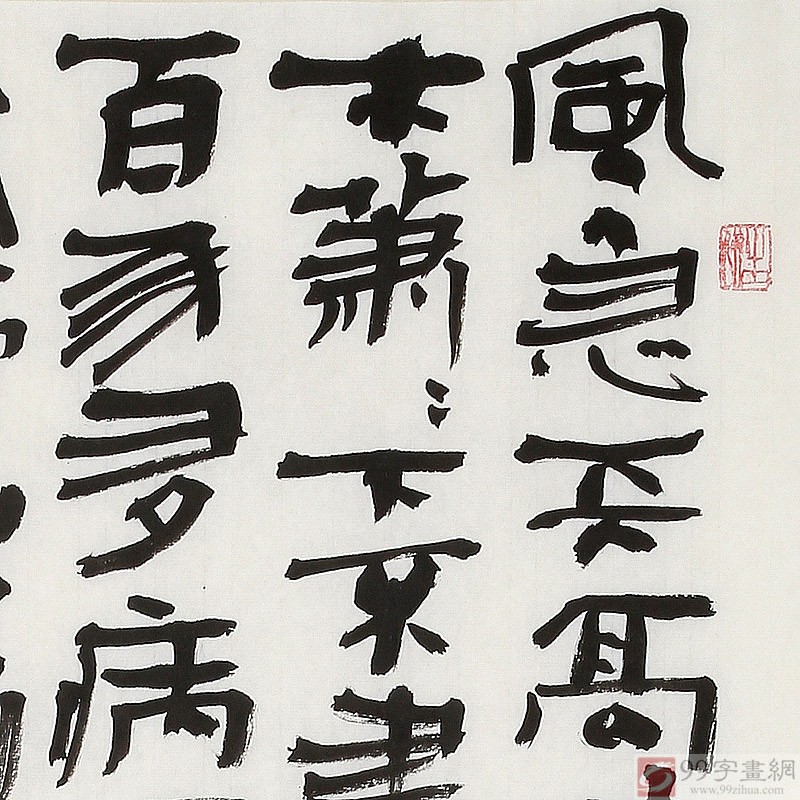 風急天高
木蕭〻下不盡
百年多病
99字畫網
www.99zihua.com